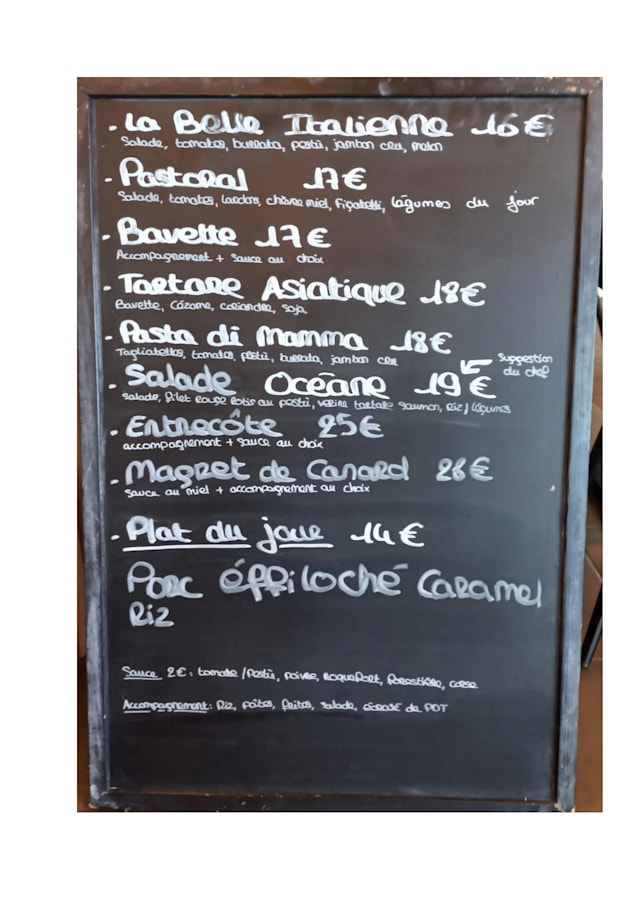 • La Belle Italienne 16€
Salade, tomates, burrata, pesto, jambon cru, melon
• Pastoral 17€
Salade, tomates, lardons, chèvre miel, Figatelli, légumes du jour
• Bavette 17€
Accompagnement + sauce au choix
• Tartare Asiatique 18€
Bavette, Cézame, coriandre, soja
• Pasta di Mamma 18€
Tagliatelles, tomates, pesto, burrata, jambon cru
Suggestion du chef
• Salade Océane 19€
salade, filet rouge rotis au pesto, verine tartare saumon, riz / légumes
• Entrecôte 25€
accompagnement + sauce au choix
• Magret de Canard 26€
sauce au miel + accompagnement au choix
• Plat du jour 14€
Porc éffiloché Caramel
Riz
Sauce 2€: tomate / Pesto, poivre, roquefort, forestière, corse
Accompagnement: Riz, pâtes, frites, salade, écrasé de PDT